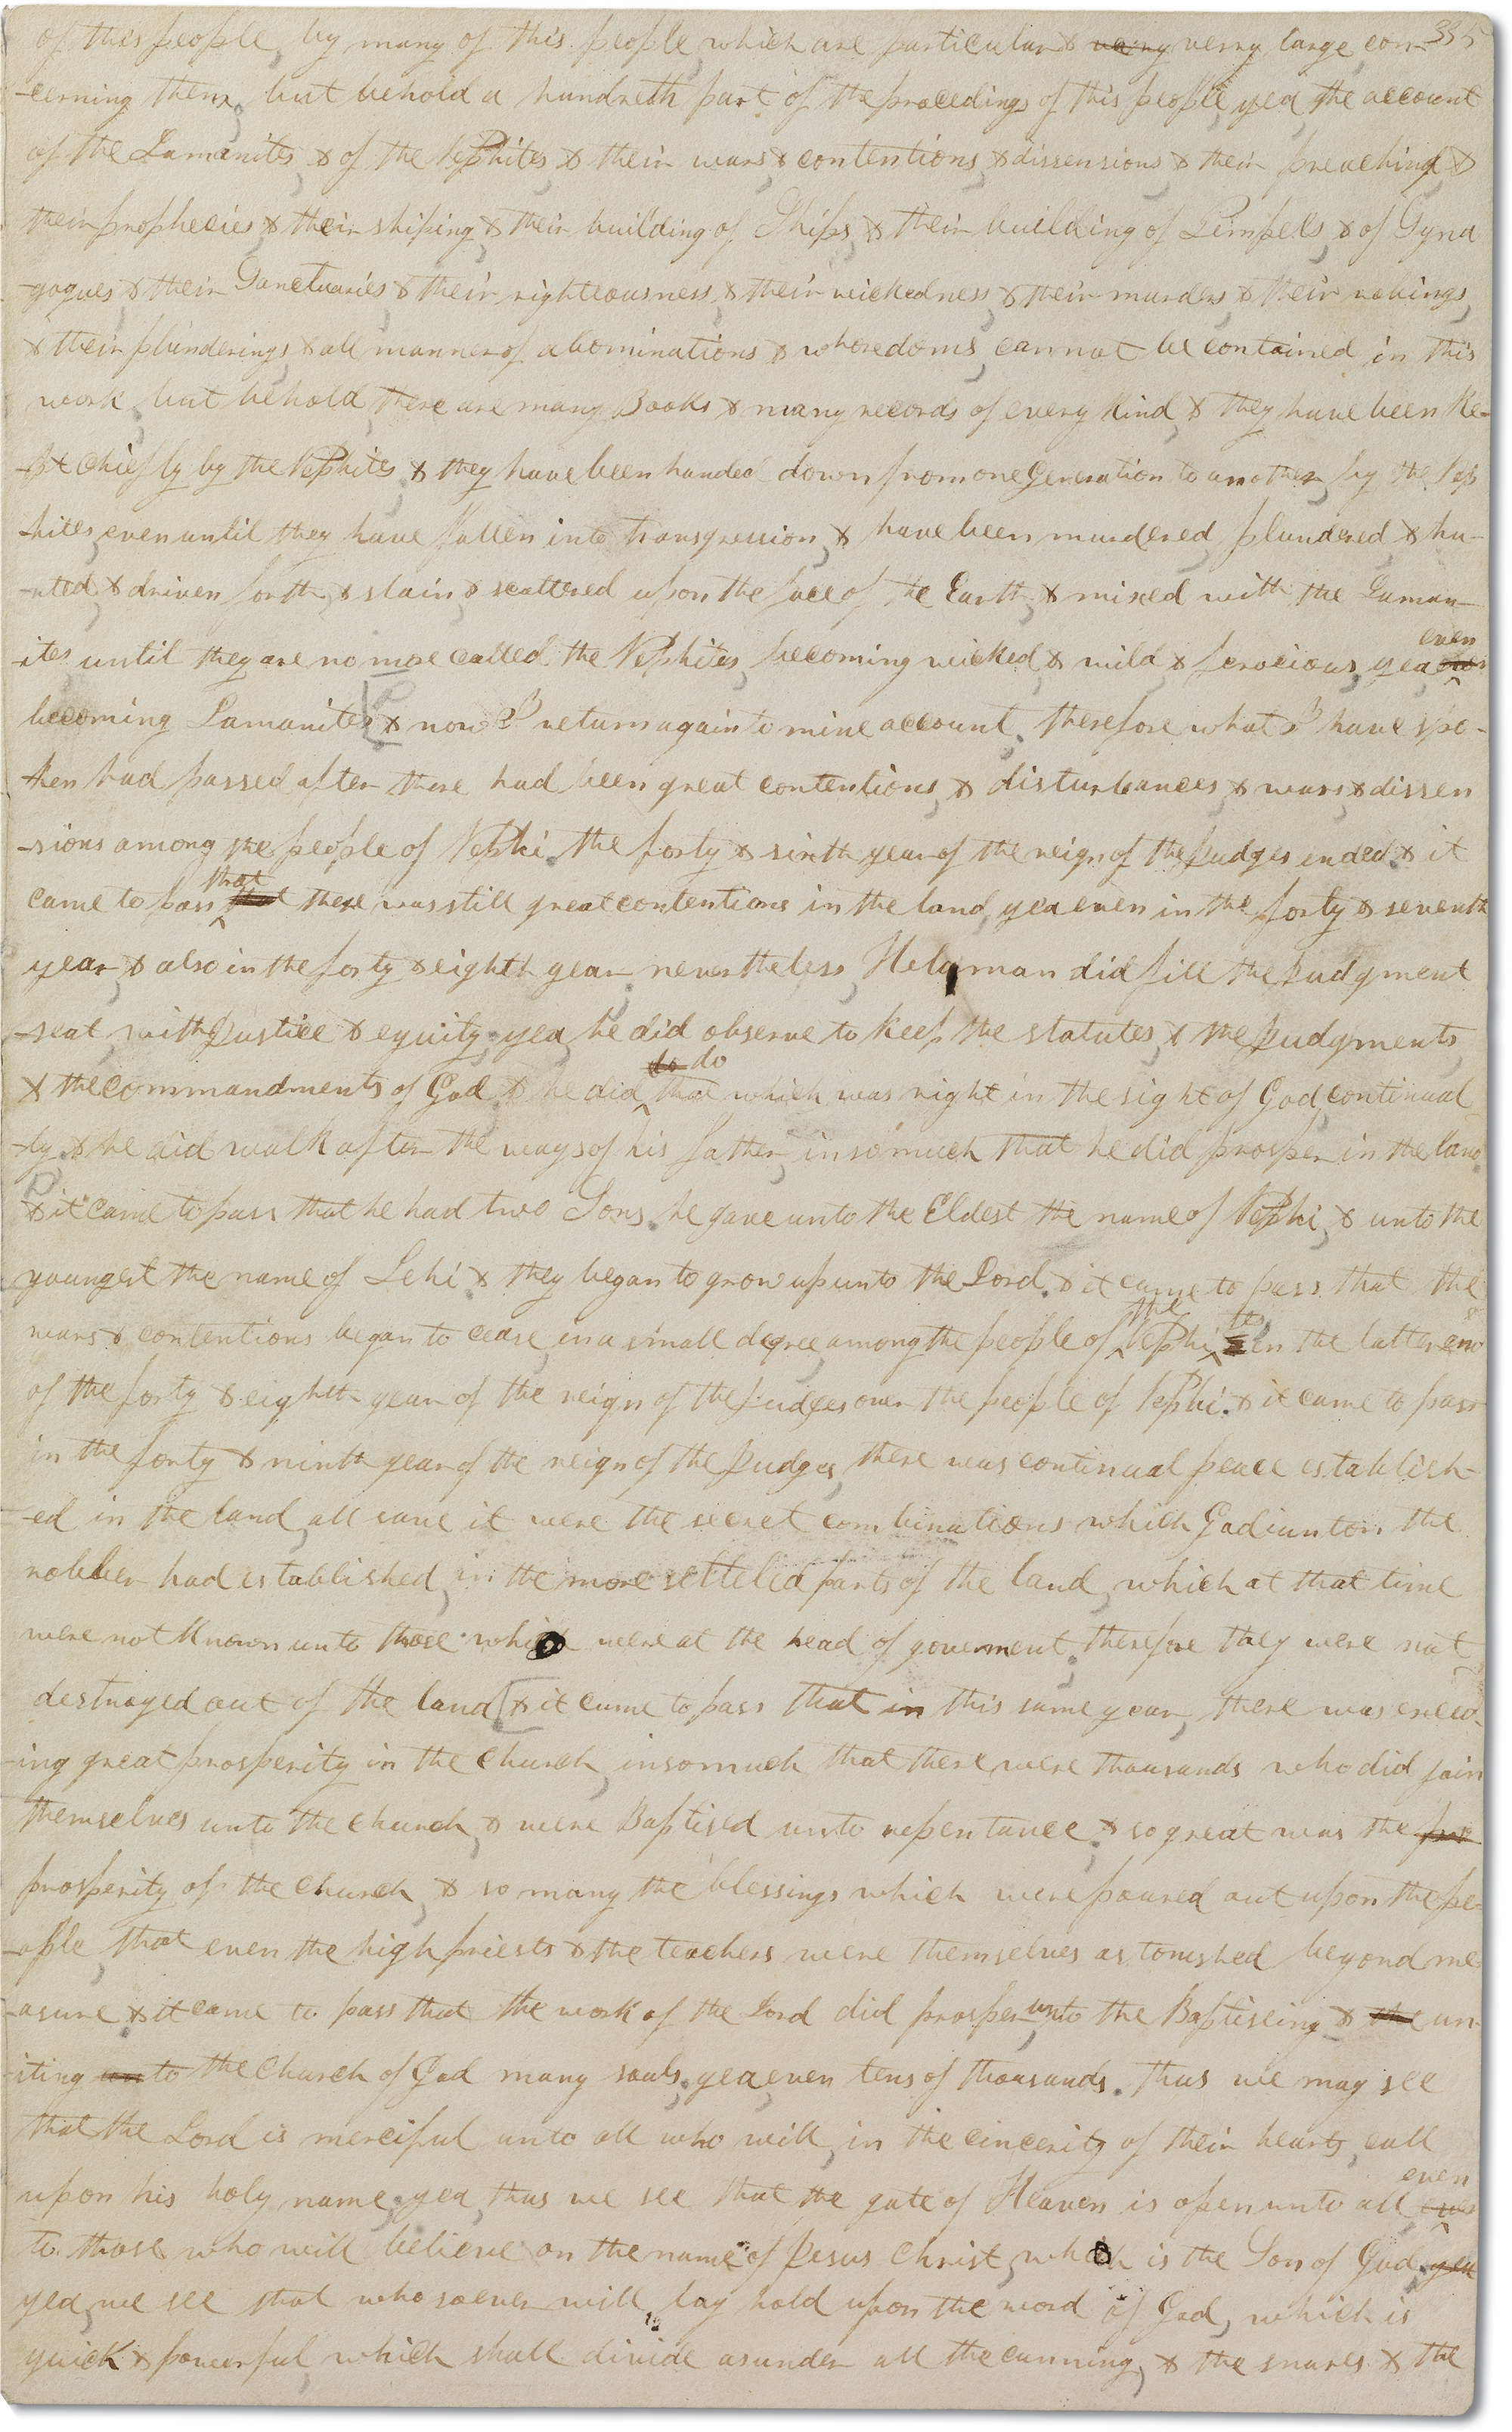 335
of this people, by many of this people, which are particular & very verry large, con-
-cerning them. but behold a hundreth part of the procedings of this people, yea, the account
of the Lamanites, & of the Nephites, & their wars, & contentions, & dissensions, & their preaching, &
their prophecies, & their shiping, & their building of Ships, & their building of Tempels, & of Syna
-gogues, & their Sanctuaries, & their righteousness, & their wickedness, & their murders, & their robings,
& their plunderings, & all manner of abominations & whoredoms, cannot be contained in this
work. but behold, there are many Books & many records of every kind, & they have been ke-
-pt chiefly by the Nephites. & they have been handed down from one Generation to another, by the Nep
-hites, even until they have fallen into transgression, & have been murdered, plundered, & hu-
-nted, & driven forth, & slain, & scattered upon the face of the Earth, & mixed with the Laman-
even
-ites until they are no more called the Nephites, becoming wicked, & wild, & ferocious, yea
becoming Lamanites & now I return again to mine account. therefore what I have spo-
-ken had passed after there had been great contentions, & disturbances, & wars, & dissen
-sions among the people of Nephi. the forty & sixth year of the reign of the Judges ended. & it
that
came to pass that there was still great contentions in the land, yea even in the forty & seventh
year, & also in the forty & eighth year. nevertheless, Helaman did fill the Judgment
-seat with Justice & equity. yea, he did observe to keep the statutes, & the Judgments,
to do
& the commandments of God, & he did that which was right in the sight of God continual
-ly, & he did walk after the ways of his father, insomuch that he did prosper in the land.
& it came to pass that he had two Sons. he gave unto the Eldest the name of Nephi, & unto the
youngest the name of Lehi. & they began to grow up unto the Lord. & it came to pass that the
the tes
wars & contentions began to cease, in a small degree, among the people of Nephi in the latter end
of the forty & eighth year of the reign of the Judges over the people of Nephi. & it came to pass
in the forty & ninth year of the reign of the Judges, there was continual peace establish-
-ed in the land, all save it were the secret combinations which Gadianton the
robber had established, in the more settelled parts of the land, which at that time
were not known unto those which were at the head of goverment. therefore they were not
destroyed out of the land & it came to pass that in this same year, there was exceed-
-ing great prosperity in the church, insomuch that there were thousands who did join
themselves unto the church, & were Baptised unto repentance. & so great was the pro
prosperity of the church, & so many the blessings which were poured out upon the pe-
-ople, that even the high priests & the teachers were themselves astonished beyond me-
-asure. & it came to pass that the work of the Lord did prosper unto the Baptiseing & the un-
-iting unto the church of God many souls, yea, even tens of thousands. thus we may see
that the Lord is merciful unto all who will, in the cincerity of their hearts, call
even
upon his holy name. yea, thus we see that the gate of Heaven is open unto all
to those who will believe on the name of Jesus Christ, which is the Son of God. yea
yea, we see that whosoever will, lay hold upon the word of God, which is
quick & powerful, which shall divide asunder all the cunning, & the snares & the